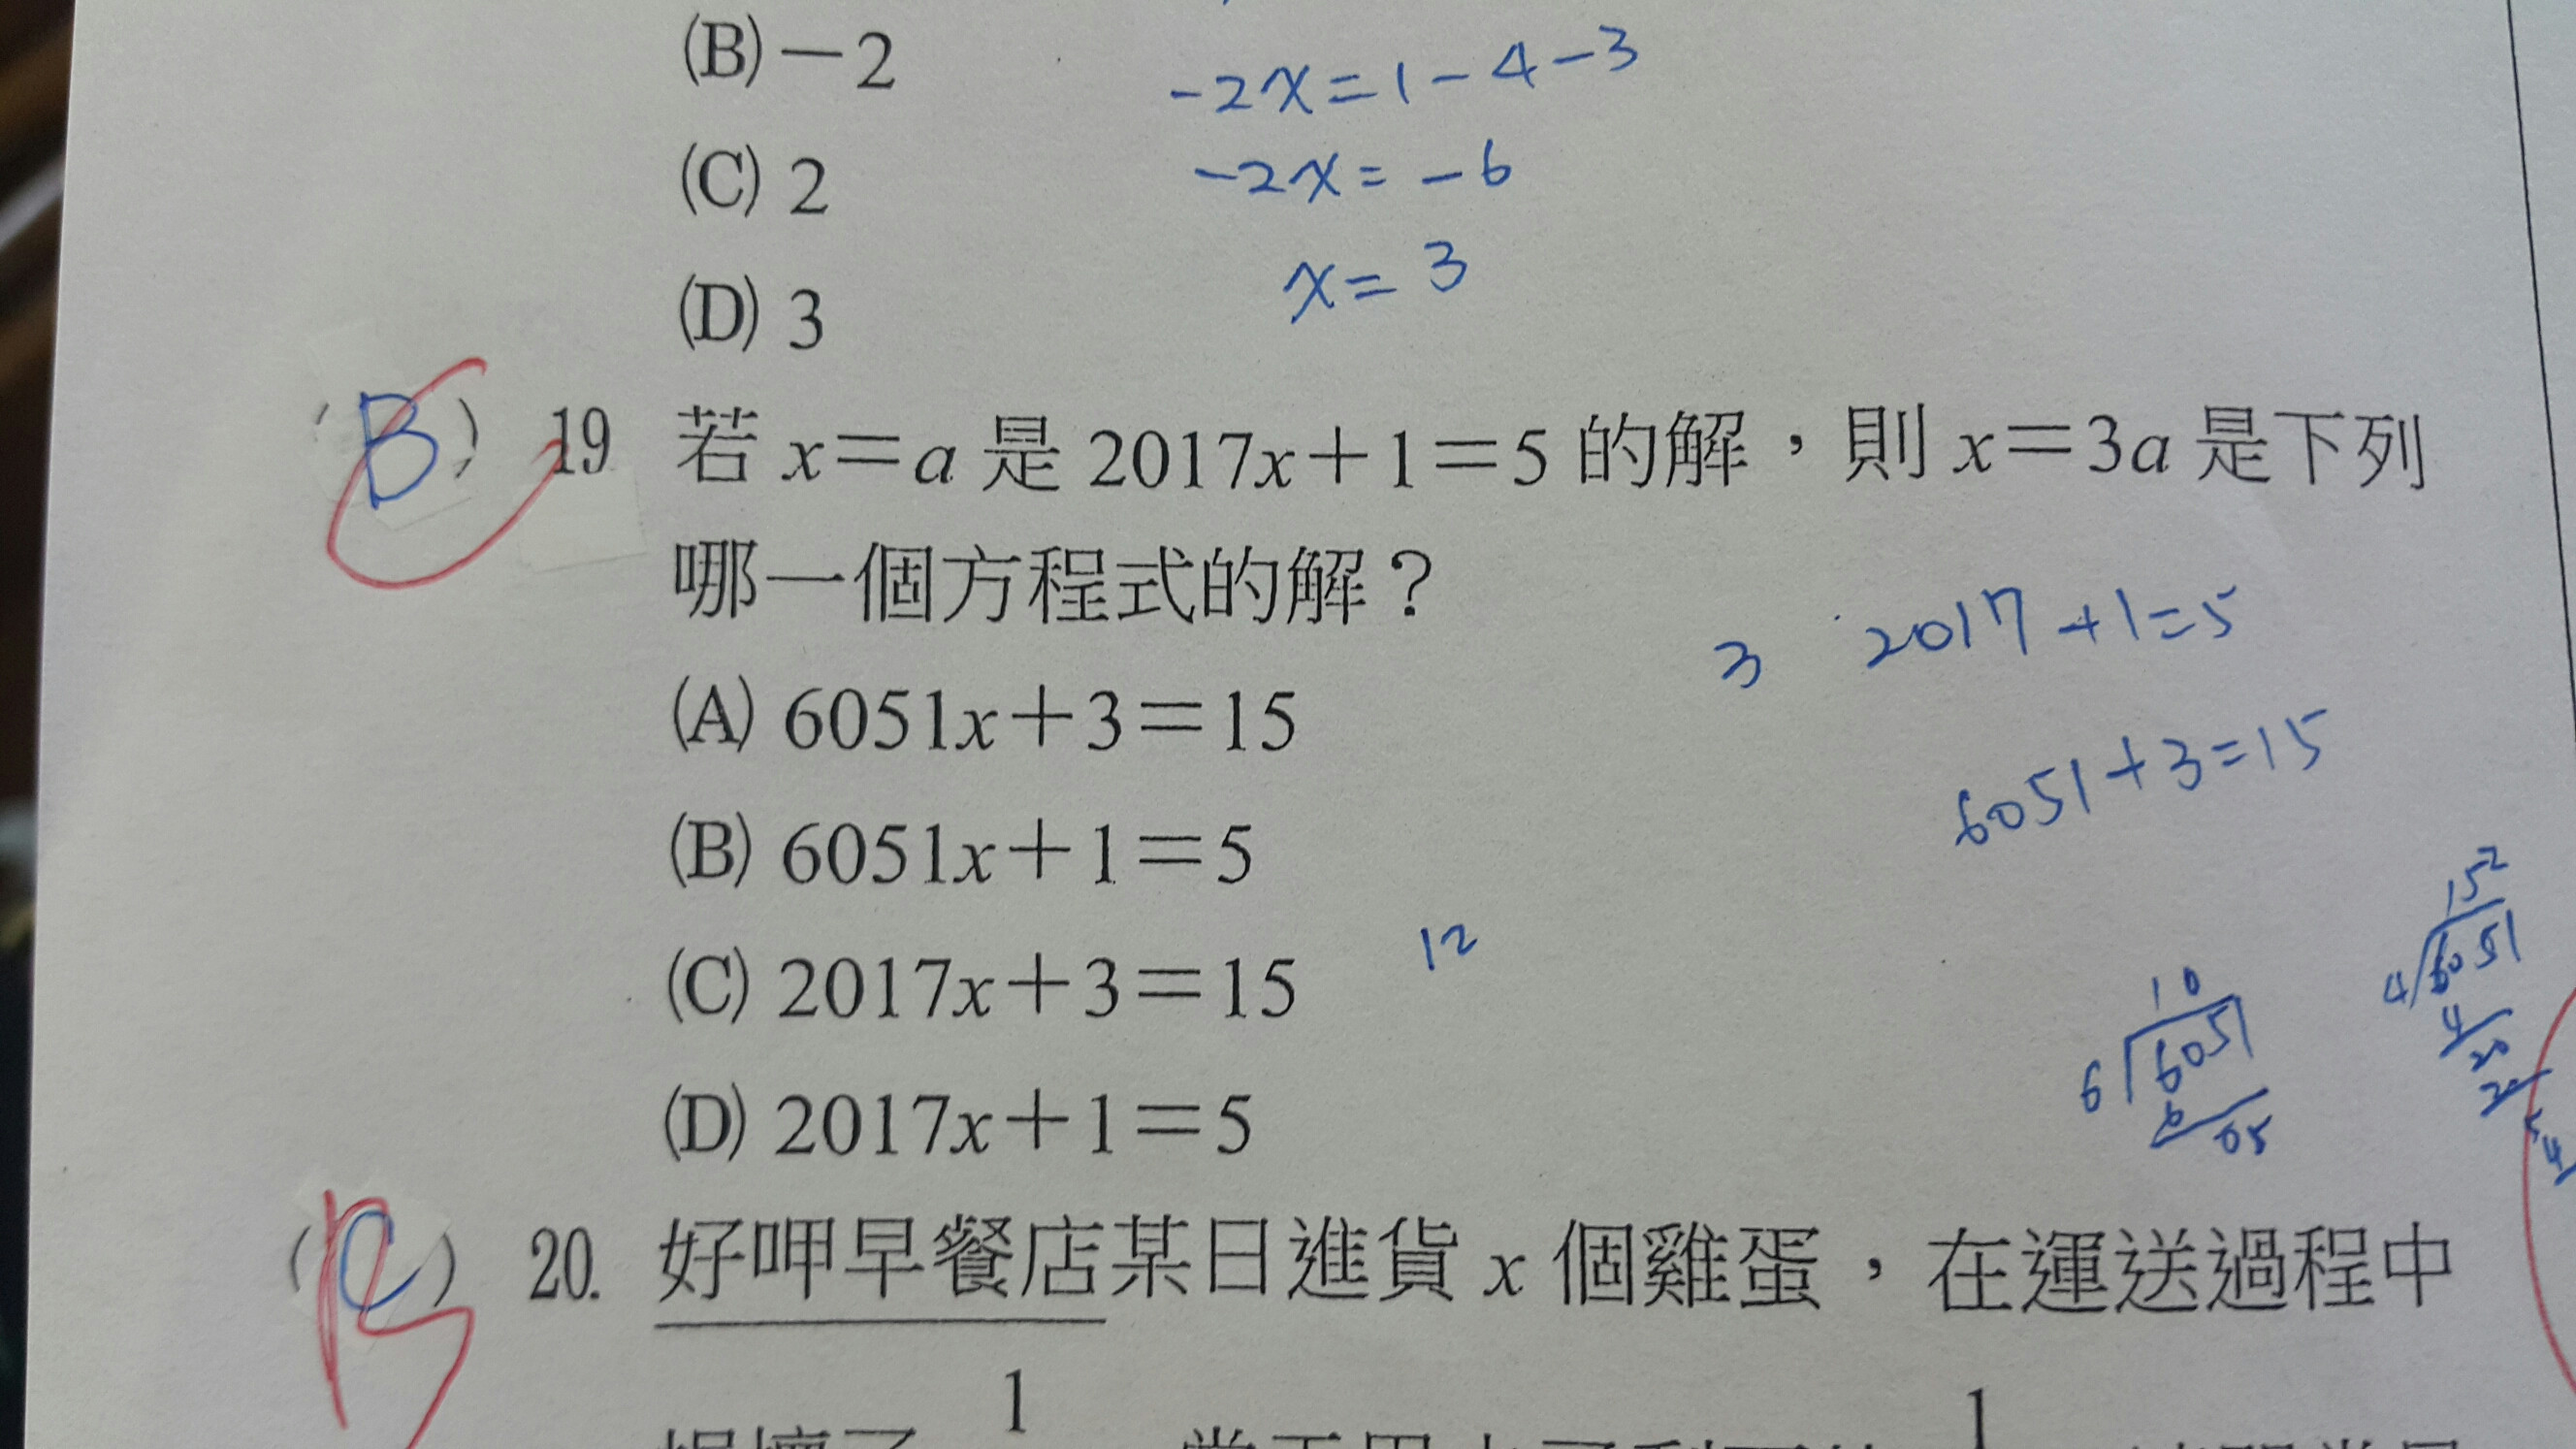 (B)－2
-2x=1-4-3
(C) 2
-2x=-6
(D) 3
x=3
(B) 19 若 x＝a 是 2017x＋1＝5 的解，則 x＝3a 是下列
哪一個方程式的解？
3 2017+1=5
(A) 6051x＋3＝15
6051+3=15
(B) 6051x＋1＝5
(C) 2017x＋3＝15
12
152
4 6051
4
20
10
6 6051
6
05
(D) 2017x＋1＝5
(C) 20. 好呷早餐店某日進貨 x 個雞蛋，在運送過程中
1
1